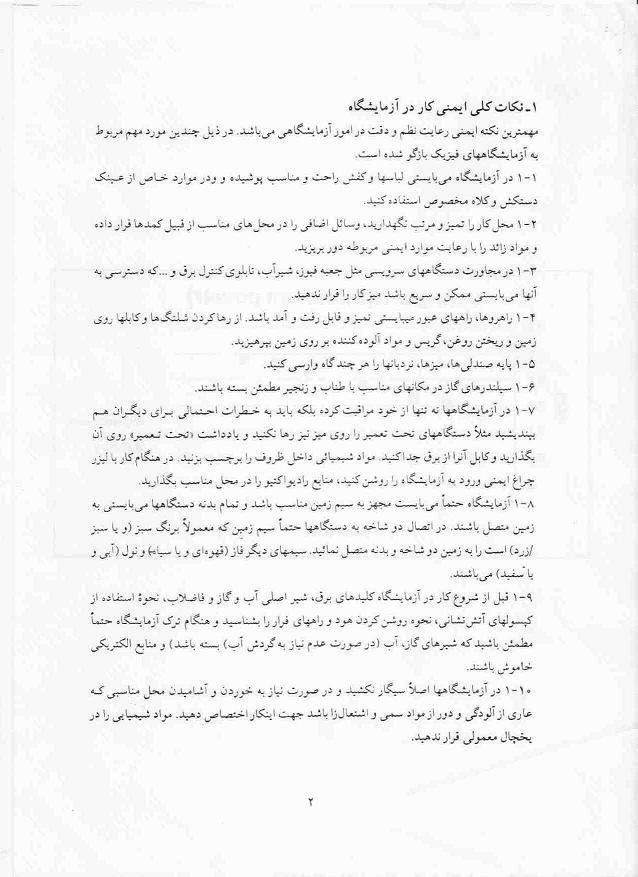 ۱ـ نکات کلی ایمنی کار در آزمایشگاه
مهمترین نکته ایمنی رعایت نظم و دقت در امور آزمایشگاهی می‌باشد. در ذیل چندین مورد مهم مربوط
به آزمایشگاههای فیزیک بازگو شده است.
۱-۱ در آزمایشگاه می‌بایستی لباسها و کفش راحت و مناسب پوشیده و ودر موارد خـاص از عـینک
دستکش و کلاه مخصوص استفاده کنید.
۱-۲ محل کار را تمیز و مرتب نگهدارید، وسائل اضافی را در محل‌های مناسب از قبیل کمدها قرار داده
و مواد زائد را با رعایت موارد ایمنی مربوطه دور بریزید.
۱-۳ در مجاورت دستگاههای سرویسی مثل جعبه فیوز، شیرآب، تابلوی کنترل برق و ...که دسترسی به
آنها می‌بایستی ممکن و سریع باشد میز کار را قرار ندهید.
۱-۴ راهروها، راههای عبور میبایستی تمیز و قابل رفت و آمد باشد. از رها کردن شلنگ‌ها و کابلها روی
زمین و ریختن روغن، گریس و مواد آلوده کننده بر روی زمین بپرهیزید.
۱-۵ پایه صندلی‌ها، میزها، نردبانها را هر چند گاه وارسی کنید.
۱-۶ سیلندرهای گاز در مکانهای مناسب با طناب و زنجیر مطمئن بسته باشند.
۱-۷ در آزمایشگاهها نه تنها از خود مراقبت کرده بلکه باید به خـطرات احـتمالی بـرای دیگـران هـم
بیندیشید مثلاً دستگاههای تحت تعمیر را روی میز نیز رها نکنید و یادداشت «تحت تعمیر» روی آن
بگذارید و کابل آنرا از برق جدا کنید. مواد شیمیائی داخل ظروف را برچسب بزنید. در هنگام کار با لیزر
چراغ ایمنی ورود به آزمایشگاه را روشن کنید، منابع رادیواکتیو را در محل مناسب بگذارید.
۱-۸ آزمایشگاه حتماً می‌بایست مجهز به سیم زمین مناسب باشد و تمام بدنه دستگاهها می‌بایستی به
زمین متصل باشند. در اتصال دو شاخه به دستگاهها حتماً سیم زمین که معمولاً برنگ سبز (و یا سبز
/زرد) است را به زمین دو شاخه و بدنه متصل نمائید. سیمهای دیگر فاز (قهوه‌ای و یا سیاه) و نول (آبی و
یا سفید) می‌باشند.
۱-۹ قبل از شروع کار در آزمایشگاه کلیدهای برق، شیر اصلی آب و گاز و فاضلاب، نحوهٔ استفاده از
کپسولهای آتش‌نشانی، نحوه روشن کردن هود و راههای فرار را بشناسید و هنگام ترک آزمایشگاه حتماً
مطمئن باشید که شیرهای گاز، آب (در صورت عدم نیاز به گردش آب) بسته باشد) و منابع الکتریکی
خاموش باشند.
۱-۱۰ در آزمایشگاهها اصلاً سیگار نکشید و در صورت نیاز به خوردن و آشامیدن محل مناسبی کـه
عاری از آلودگی و دور از مواد سمی و اشتعال‌زا باشد جهت اینکار اختصاص دهید. مواد شیمیایی را در
یخچال معمولی قرار ندهید.
۲